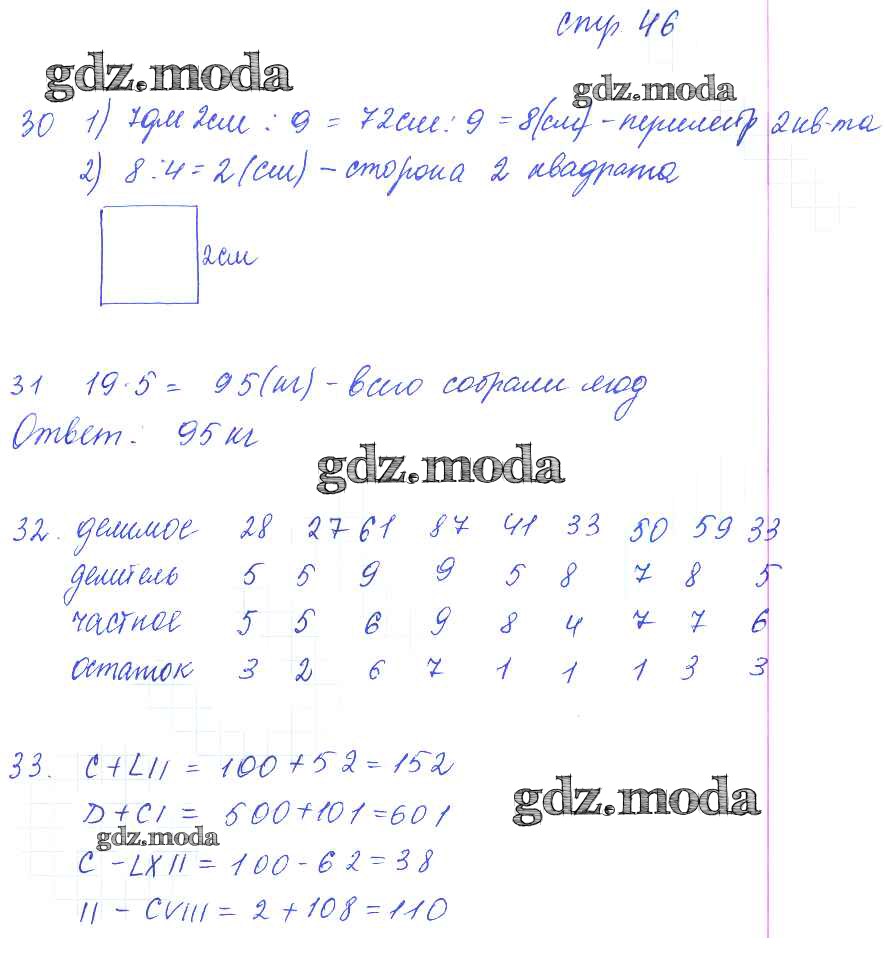 стр 46
gdz.moda
gdz.moda
30 1) 7дм 2см : 9 = 72см : 9 = 8(см) - периметр 2кв-та
2) 8 : 4 = 2 (см) - сторона 2 квадрата
2см
31 19 · 5 = 95(кг) - всего собрали ягод
Ответ: 95 кг
gdz.moda
32. делимое 28 27 61 87 41 33 50 59 33
делитель 5 5 9 9 5 8 7 8 5
частное 5 5 6 9 8 4 7 7 6
остаток 3 2 6 7 1 1 1 3 3
33. C + LII = 100 + 52 = 152
gdz.moda
D + CI = 500 + 101 = 601
gdz.moda
C - LXII = 100 - 62 = 38
II - CVIII = 2 + 108 = 110